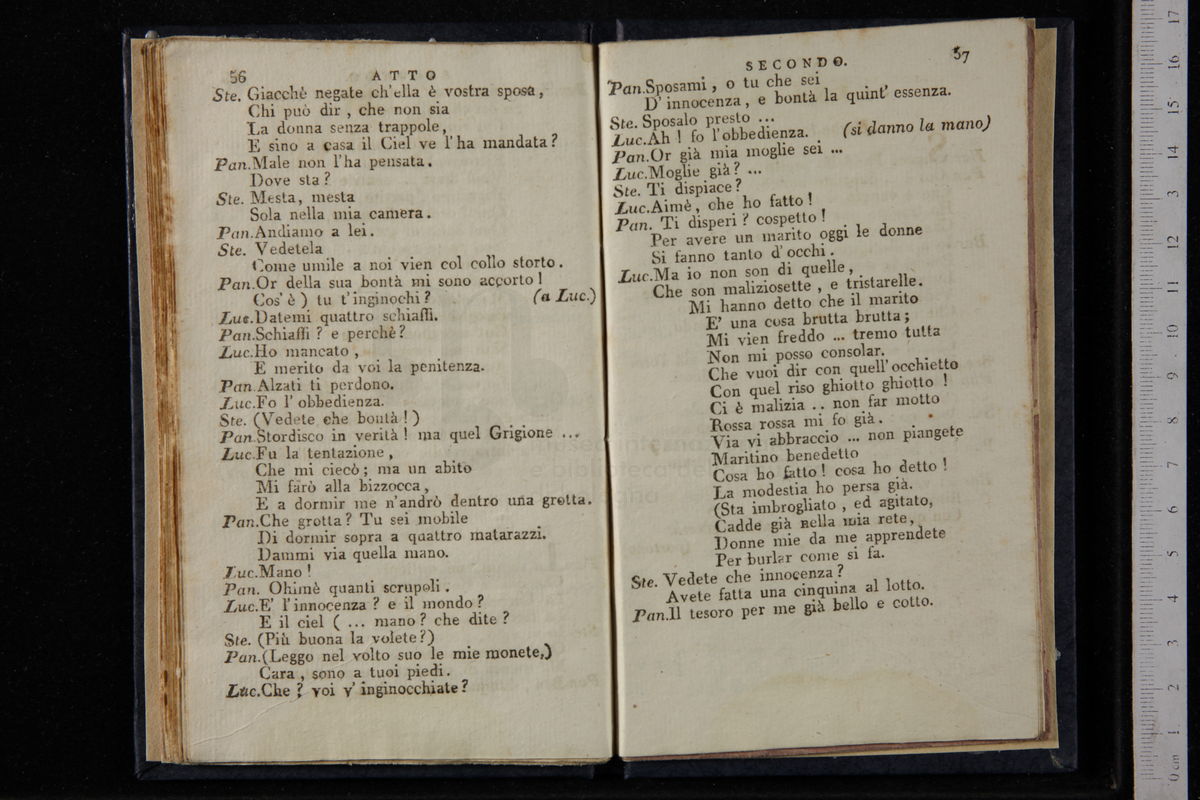 56 ATTO
Ste. Giacchè negate ch'ella è vostra sposa,
Chi può dir , che non sia
La donna senza trappole,
E sino a casa il Ciel ve l'ha mandata?
Pan.Male non l'ha pensata.
Dove sta?
Ste. Mesta, mesta
Sola nella mia camera.
Pan.Andiamo a lei.
Ste. Vedetela
Come umile a noi vien col collo storto.
Pan.Or della sua bontà mi sono accorto!
Cos'è ) tu t'inginochi? (a Luc.)
Luc.Datemi quattro schiaffi.
Pan.Schiaffi ? e perchè?
Luc.Ho mancato ,
E merito da voi la penitenza.
Pan.Alzati ti perdono.
Luc.Fo l' obbedienza.
Ste. (Vedete che bontà!)
Pan.Stordisco in verità! ma quel Grigione ...
Luc.Fu la tentazione ,
Che mi ciecò; ma un abito
Mi farò alla bizzocca,
E a dormir me n'andrò dentro una grotta.
Pan.Che grotta? Tu sei mobile
Di dormir sopra a quattro matarazzi.
Dammi via quella mano.
Luc.Mano!
Pan. Ohimè quanti scrupoli.
Luc.E' l'innocenza ? e il mondo?
E il ciel ( ... mano? che dite?
Ste. (Più buona la volete?)
Pan.(Leggo nel volto suo le mie monete,)
Cara , sono a tuoi piedi.
Luc.Che ? voi v' inginocchiate?
SECONDO. 57
Pan.Sposami , o tu che sei
D' innocenza , e bontà la quint' essenza.
Ste. Sposalo presto ...
Luc.Ah ! fo l'obbedienza. (si danno la mano)
Pan.Or già mia moglie sei ...
Luc.Moglie già? ...
Ste. Ti dispiace?
Luc.Aimè, che ho fatto!
Pan. Ti disperi ? cospetto!
Per avere un marito oggi le donne
Si fanno tanto d'occhi.
Luc.Ma io non son di quelle,
Che son maliziosette , e tristarelle.
Mi hanno detto che il marito
E' una cosa brutta brutta;
Mi vien freddo ... tremo tutta
Non mi posso consolar.
Che vuoi dir con quell'occhietto
Con quel riso ghiotto ghiotto !
Ci è malizia .. non far motto
Rossa rossa mi fo già.
Via vi abbraccio ... non piangete
Maritino benedetto
Cosa ho fatto! cosa ho detto!
La modestia ho persa già.
(Sta imbrogliato , ed agitato,
Cadde già nella mia rete,
Donne mie da me apprendete
Per burlar come si fa.
Ste. Vedete che innocenza?
Avete fatta una cinquina al lotto.
Pan.Il tesoro per me già bello e cotto.